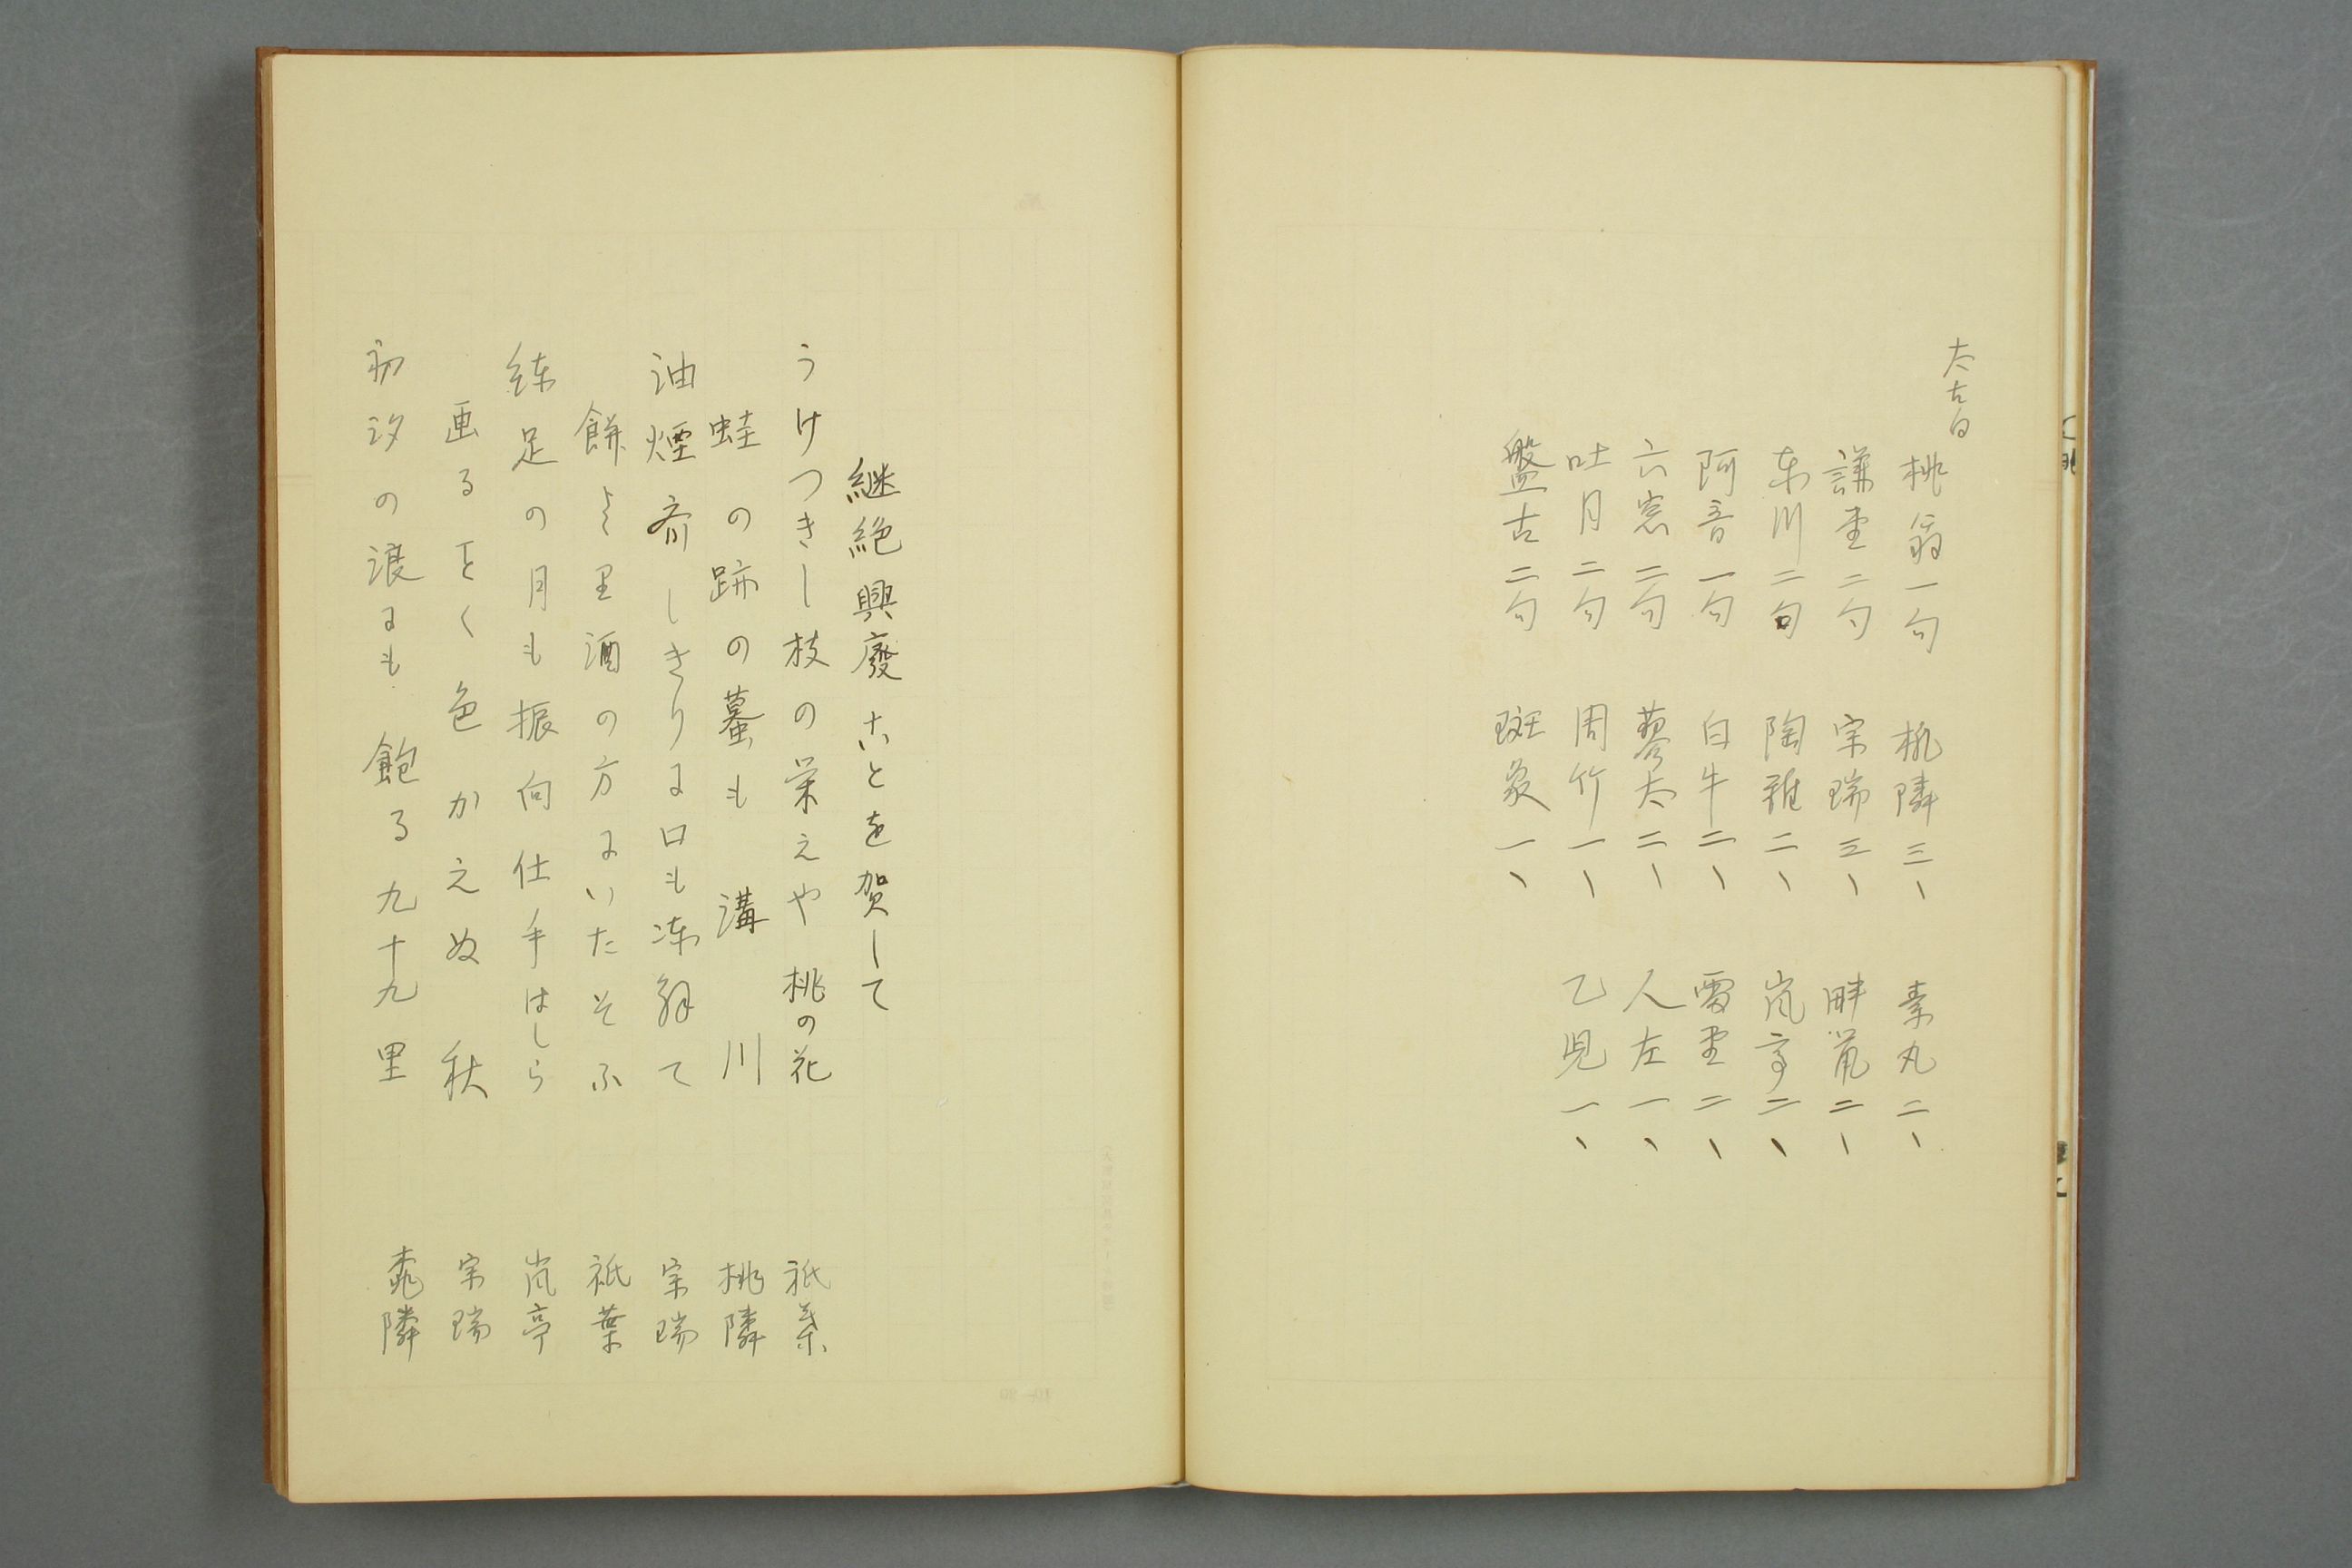 太古白
桃翁一句　桃隣三、　素丸二、
謙堂二句　宗瑞三、　畔翼二、
東川二句　陶雅二、　嵐亭二、
阿音一句　白牛二、　雷堂二、
六窓二句　蓼太二、　人左一、
吐月二句　周竹一、　乙児一、
盤古二句　斑象一、
継絶興廃ことを賀して
うけつきし枝の栄えや桃の花　祇葉
蛙の跡の蟇も溝川　桃隣
油煙斎しきりに口も凍解て　宗瑞
餅より里酒の方にいたそふ　祇葉
練足の月も振向仕手はしら　嵐亭
画ることく色かえぬ秋　宗瑞
初汐の渡にも飽る九十九里　桃隣